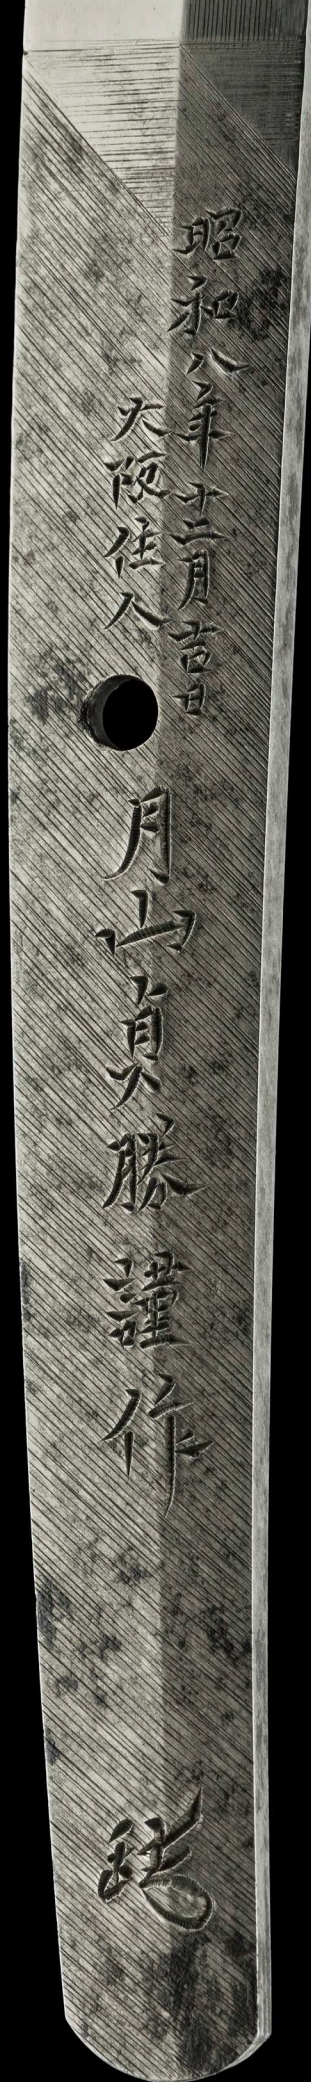 昭和八年十二月吉日
大阪住人
月山貞勝謹作